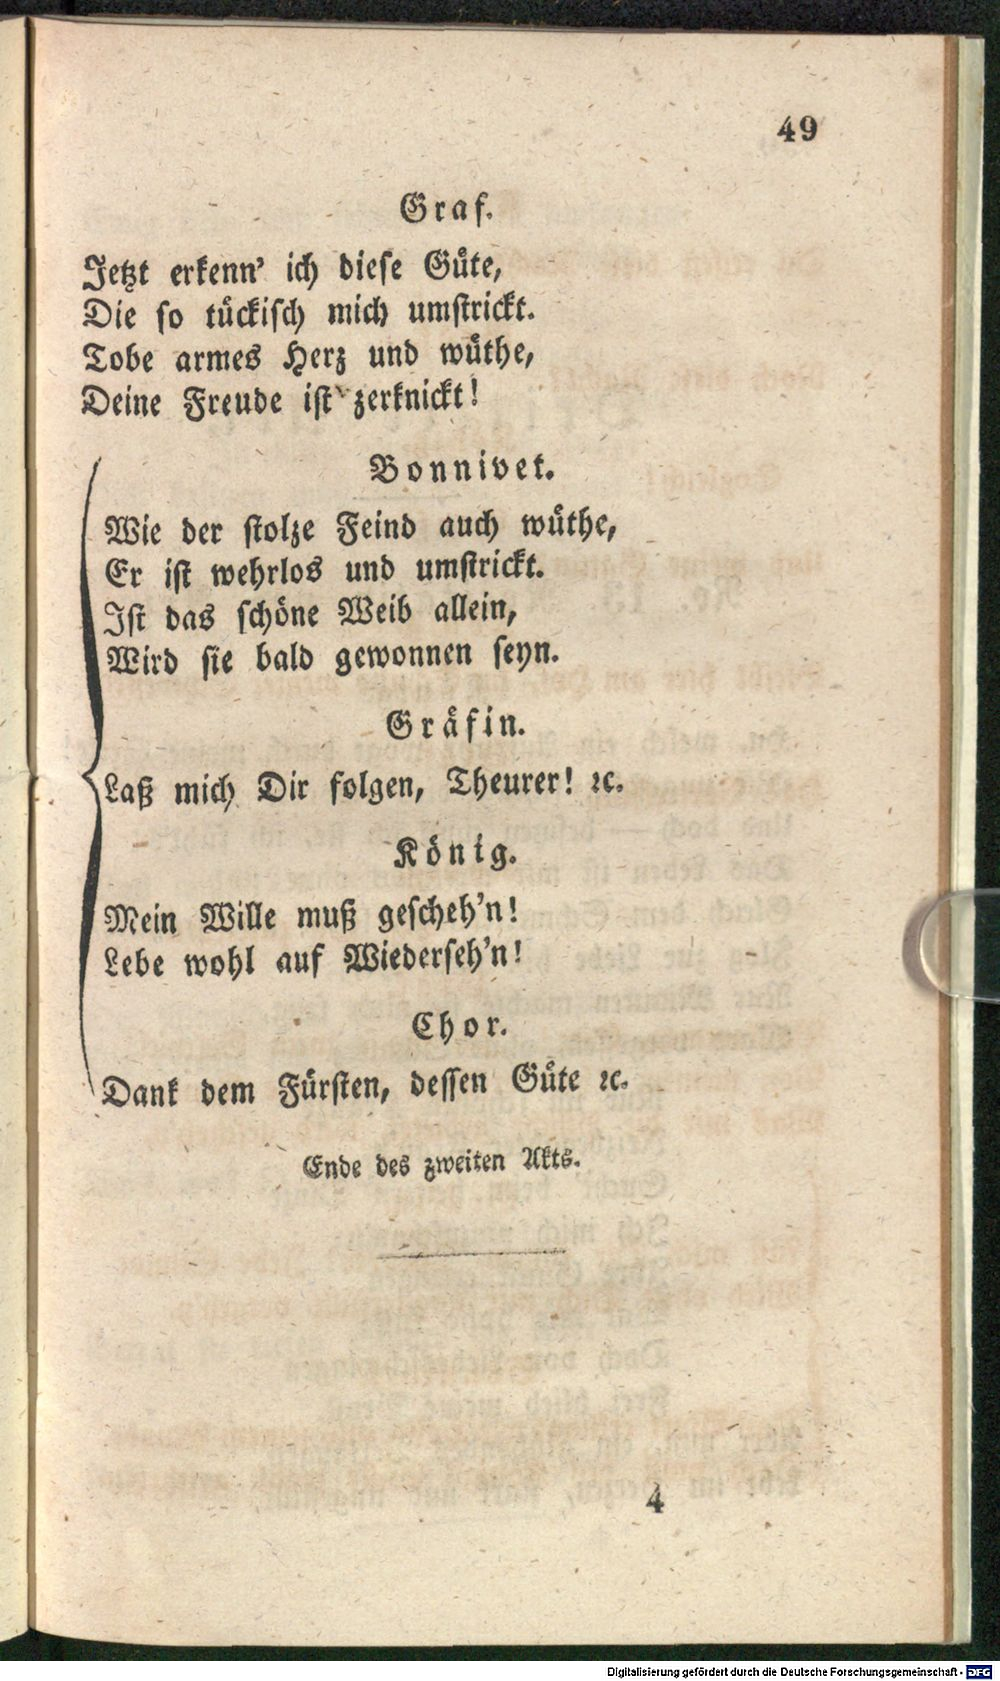 49
Graf.
Jetzt erkenn' ich diese Güte,
Die so tückisch mich umstrickt.
Tobe armes Herz und wüthe,
Deine Freude ist zerknickt!
Bonnivet.
Wie der stolze Feind auch wüthe,
Er ist wehrlos und umstrickt.
Ist das schöne Weib allein,
Wird sie bald gewonnen seyn.
Gräfin.
Laß mich Dir folgen, Theurer! ꝛc.
König.
Mein Wille muß gescheh'n!
Lebe wohl auf Wiederseh'n!
Chor.
Dank dem Fürsten, dessen Güte ꝛc.
Ende des zweiten Akts.
4
Digitalisierung gefördert durch die Deutsche Forschungsgemeinschaft - DFG